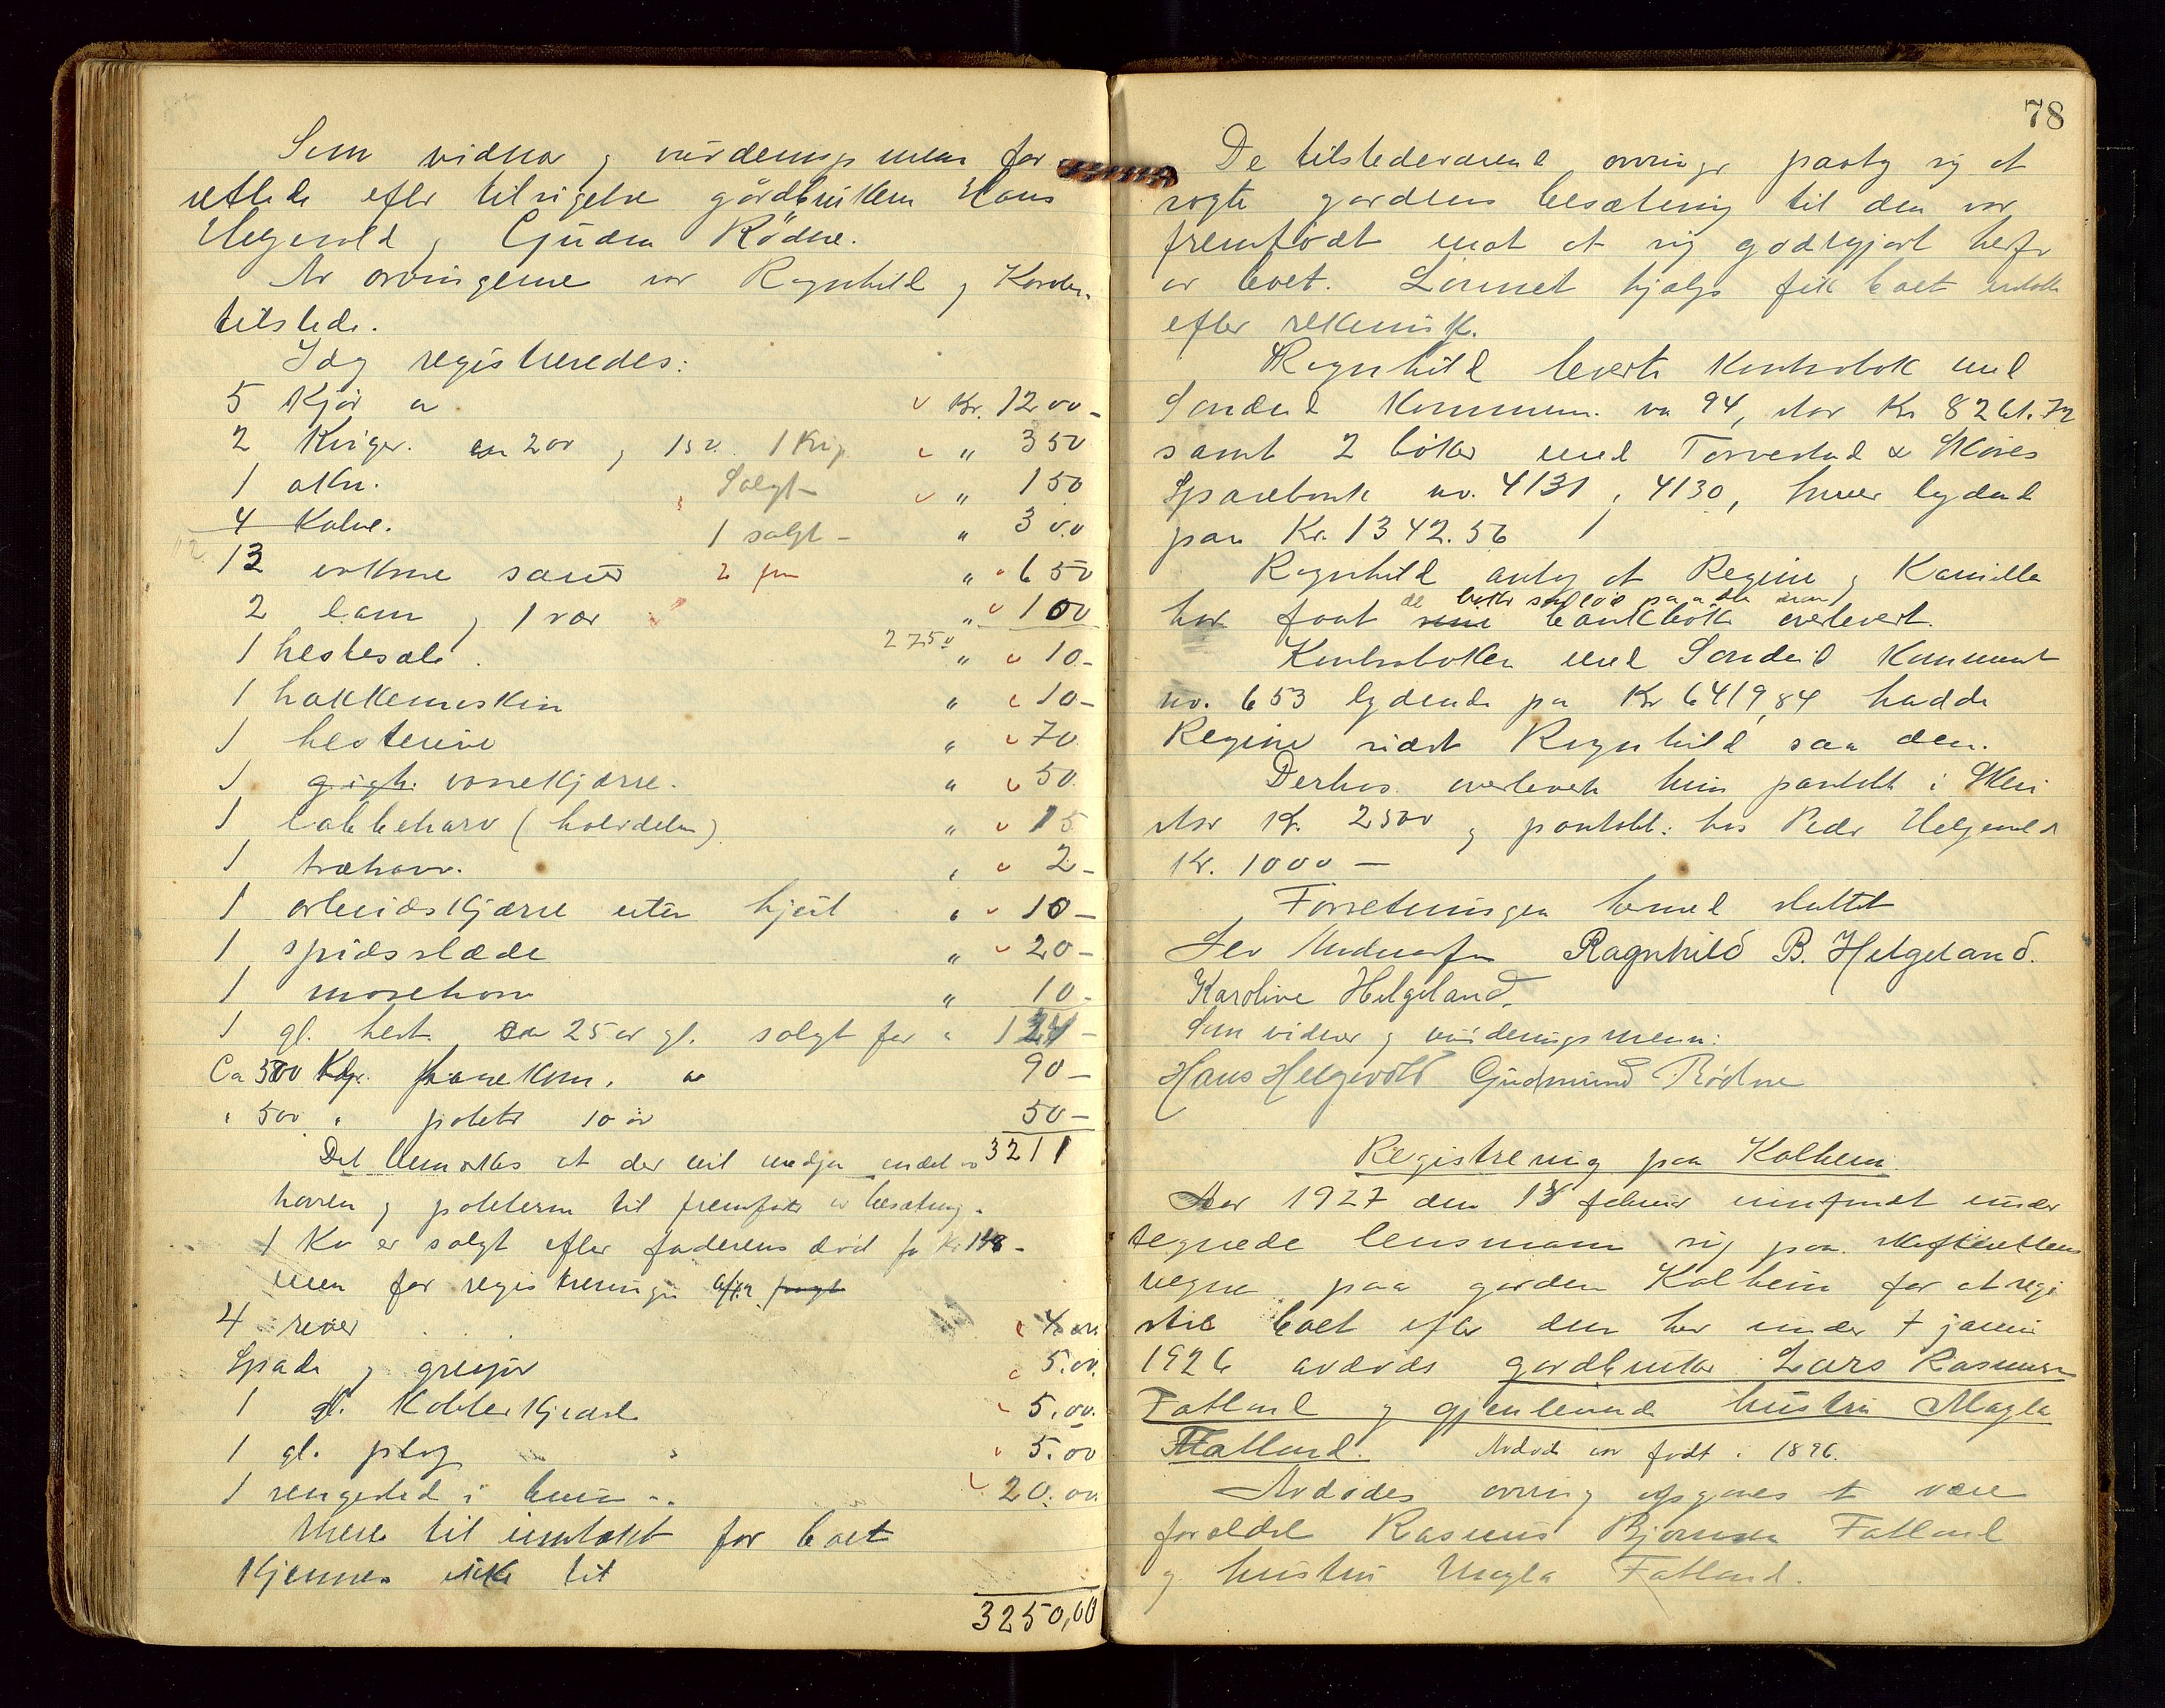 Som vidner og vurderingsmenn for
rettede efter tilsigelse gårdbruker Hans
Helgevold og Gudm Rödne.
Av arvingerne var Ragnhild og Karoline
tilstede.
Idag registreredes:
5 Kjør a Kr. 1200 -
2 Kviger. en 200 og 150. 1 Kvig " 350
1 okse. Solgt - " 150
4 Kalve. 1 solgt - " 300
13 voksne sauer 2 " 650
2 lam og 1 vær " 100
2750
1 hestesæle. " 10 -
1 hakkemaskin " 10 -
1 hesterive " 70
1 gigh. vannkjærre. " 50.
1 labbeharv (halvdelen) " 15
1 træharv. " 2 -
1 arbeidskjærre uten hjul " 10 -
1 spidsslæde " 20 -
1 moseharv " 10 -
1 gl. hest ca 25 år gl. solgt for " 124 -
Ca 300 Kgr. havrekorn. a 90 -
" 500 " poteter 10 ør 50 -
3211
Det bemerkes at der vil medgå endel av
havren og poteterne til fremfødn av besætning.
1 Ku er solgt efter faderens død for Kr 148 -
men før registreringen
4 river 4.00
Spade og greip 5.00.
1 gl. Kobberkjedel 5.00.
1 gl. plog 5.00
1 sengested i 20.00.
Mere til inntekt for boet
Kjennes ikke til
3250,00
78
De tilstedeværende arvinger paatog sig at
røgte gardens besætning til den var
fremfødt mot at sig godtgjort herfor
av boet. Lönnet hjælp fik boet
efter rekning.
Ragnhild leverte Kontrabok med
Sandeid Kommune nr 94, stor Kr 8261.72
samt 2 bøker med Torvestad & Skåres
Sparebank nr. 4131 og 4130, hver lydende
paa Kr. 1342.56
Ragnhild antog at Regine og Kamilla
har faat de bøker som lød paa dem bankbøker overlevert.
Kontraboken med Sandeid Kommune
nr. 653 lydende på Kr 6419,84 hadde
Regine sidst Ragnhild saa den.
Derhos overleverte hun pantobl i
stor Kr. 2500 og pantobl. hos Peder Helgevold
Kr. 1000 —
Forretningen hermed sluttet
Ragnhild B. Helgeland.
Karoline Helgeland.
Som vidner og vurderingsmenn:
Hans Helgevold Gudmund Rødne
Registrering paa Kalheim.
Aar 1927 den 18 februar innfandt under
tegnede lensmann sig paa skifterettens
vegne paa garden Kalheim for at regi
strere boet efter den her under 7 januar
1926 avdøde gardbruker Lars Rasmusen
Fatland og gjenlevende hustru Magla
Fatland. Avdøde var født i 1896.
Avdødes arving opgaves at være
forældre Rasmus Bjørnsen Fatland
og hustru Magla Fatland.